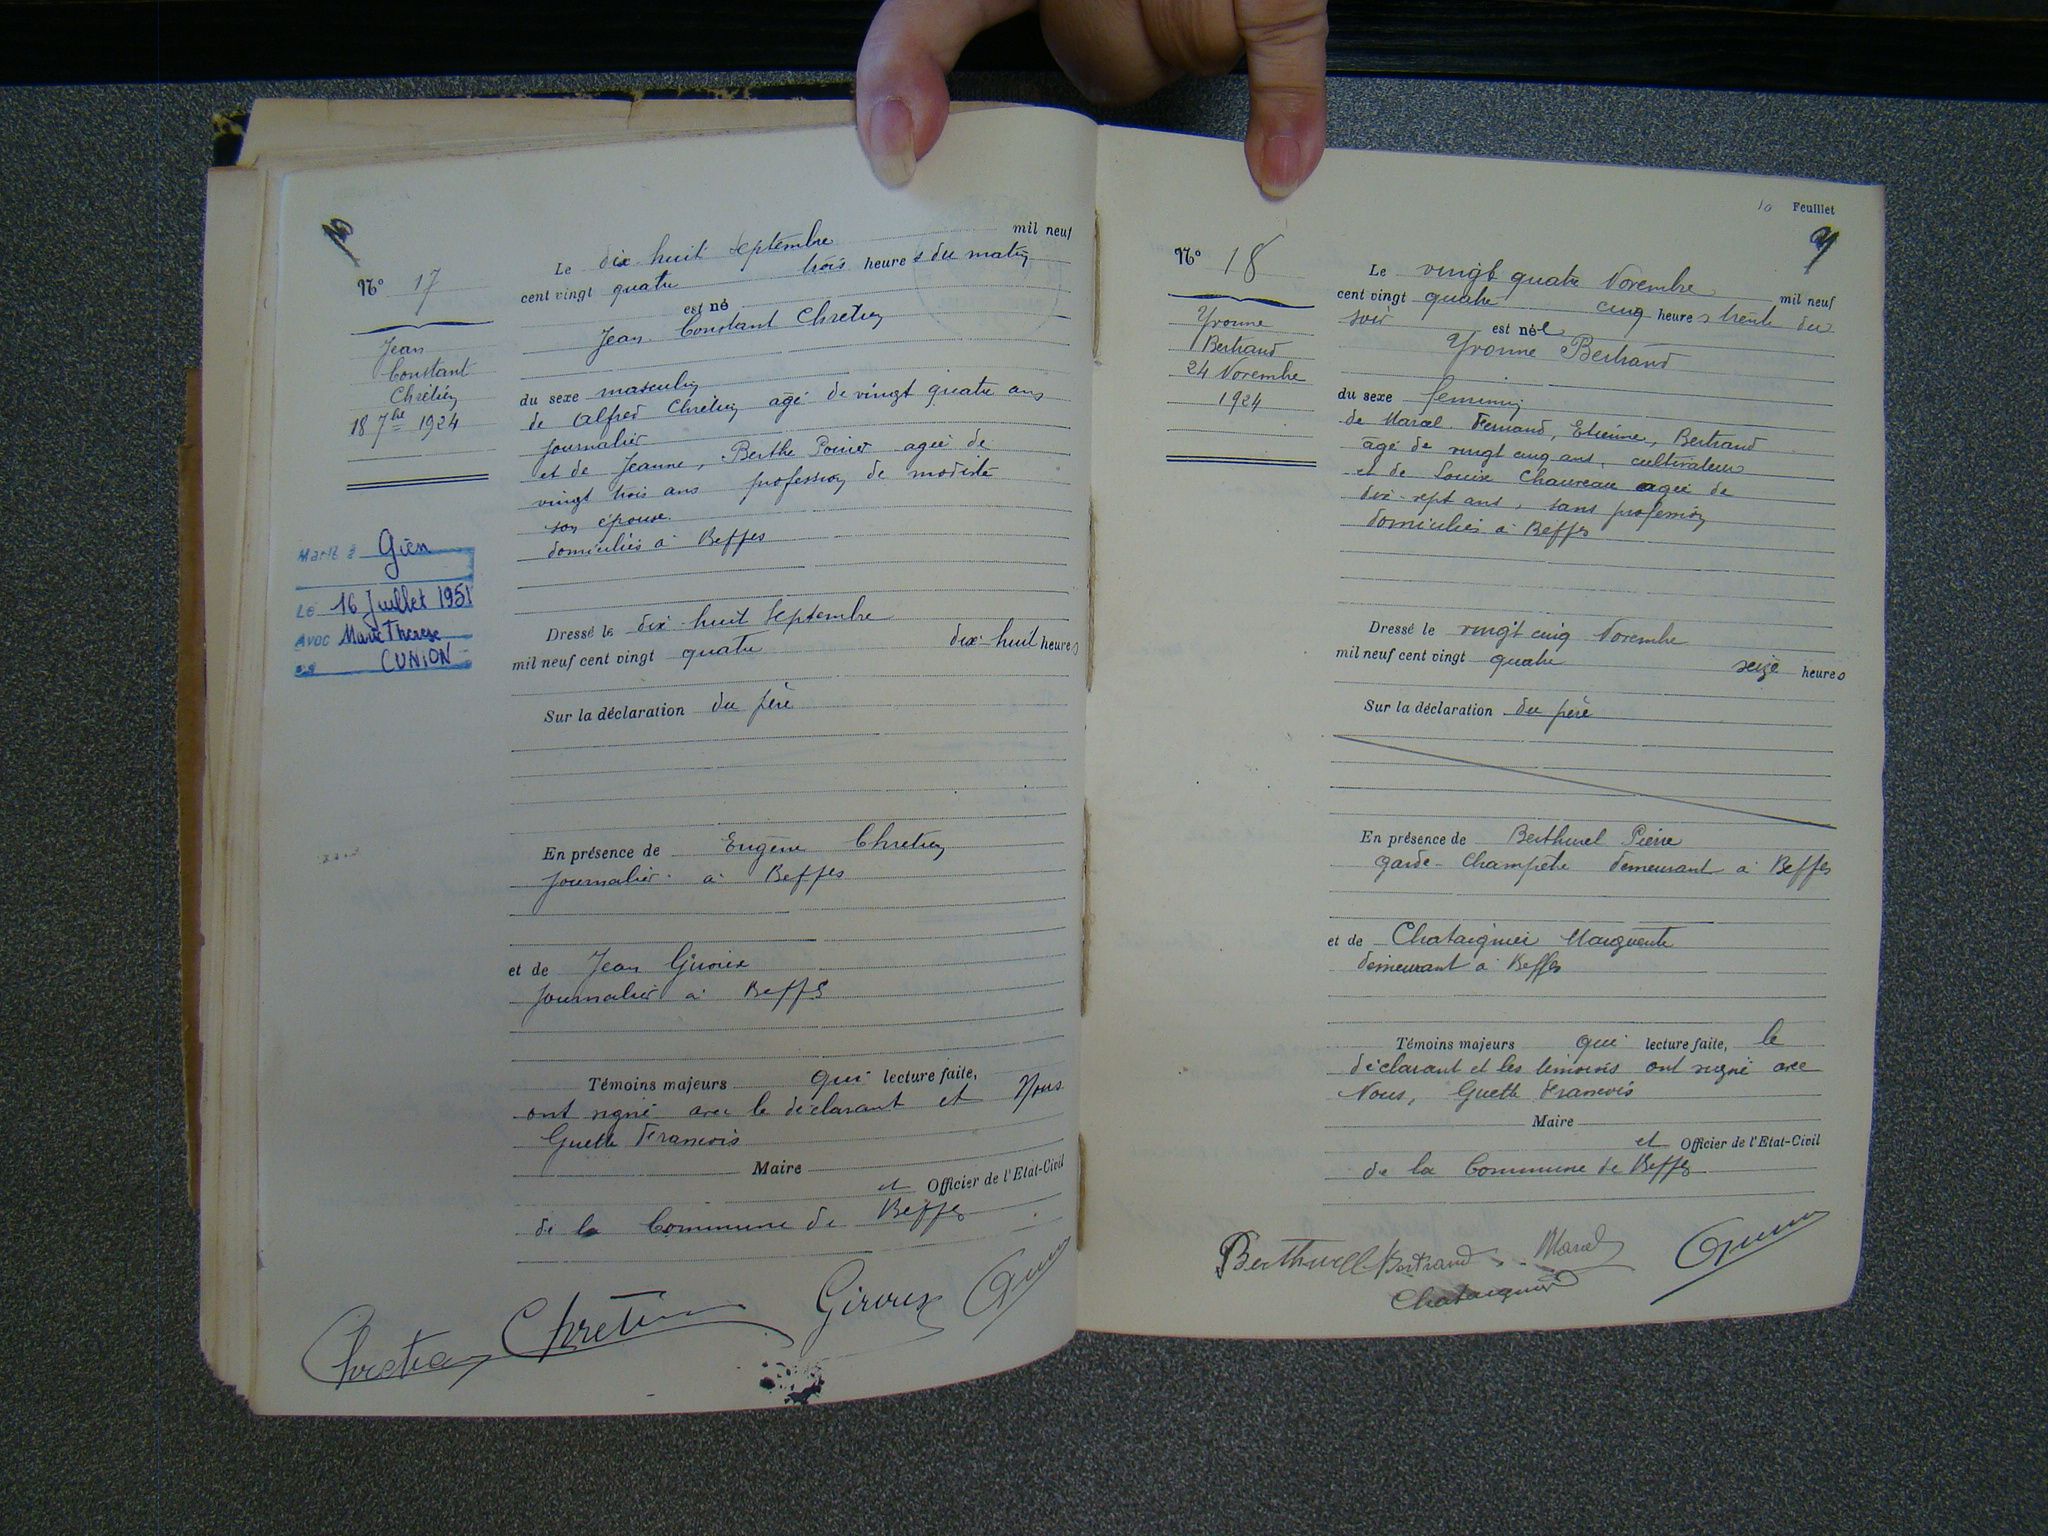 N° 17
Jean
Constant
Chrétien
18 7bre 1924
Marié à Gien
Le 16 Juillet 1951
Avec Marie Thérèse
CUNION
Le dix huit Septembre mil neuf
cent vingt quatre trois heures du matin
est né
Jean Constant Chretien
du sexe masculin
de Alfred Chrétien agé de vingt quatre ans
journalier
et de Jeanne, Berthe Poirier agée de
vingt trois ans profession de modiste
son épouse
domiciliés à Beffes
Dressé le dix huit Septembre
mil neuf cent vingt quatre dix-huit heures
Sur la déclaration du père
En présence de Eugène Chretien
journalier à Beffes
et de Jean Giroux
journalier à Beffes
Témoins majeurs qui lecture faite,
ont signé avec le déclarant et Nous
Guette Francois
Maire
et Officier de l'Etat-Civil
de la Commune de Beffes
Chretien Chretien Giroux
10 Feuillet
N° 18
Yvonne
Bertrand
24 Novembre
1924
Le vingt quatre Novembre mil neuf
cent vingt quatre cinq heures trente du
soir
est née
Yvonne Bertrand
du sexe feminin
de Marcel Fernand, Etienne, Bertrand
âgé de vingt cinq ans, cultivateur
et de Louise Chauveau agée de
dix-sept ans, sans profession
domiciliés à Beffes
Dressé le vingt cinq Novembre
mil neuf cent vingt quatre seize heures
Sur la déclaration du père
En présence de Berthurel Pierre
garde-Champêtre demeurant à Beffes
et de Chataignier Marguerite
demeurant à Beffes
Témoins majeurs qui lecture faite, le
déclarant et les témoins ont signé avec
Nous, Guette Francois
Maire
et Officier de l'Etat-Civil
de la Commune de Beffes
Berthurel Bertrand Marcel
Chataignier